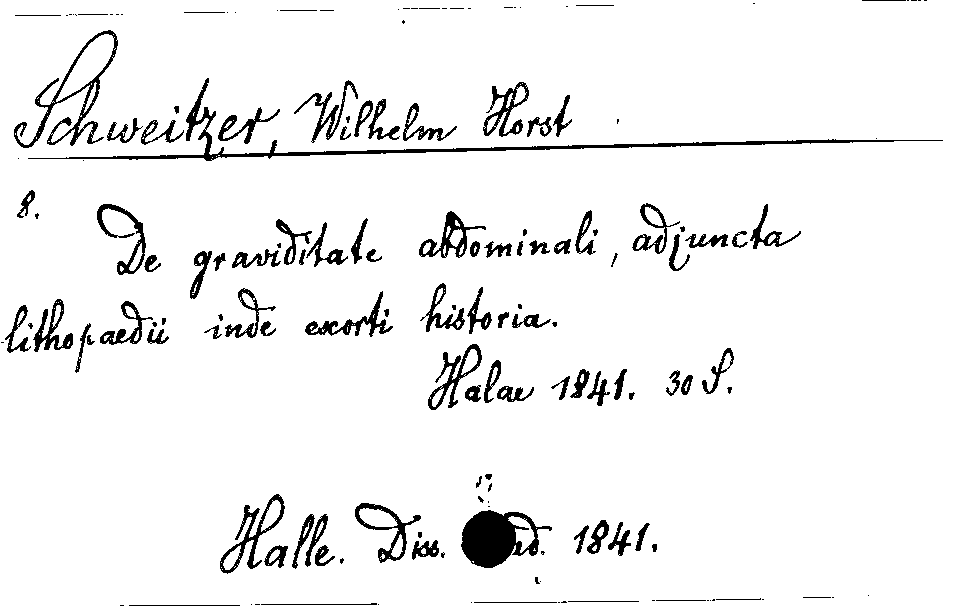 Schweitzer, Wilhelm Horst
8.
De graviditate abdominali, adjuncta
lithopaedii inde exorti historia.
Halae 1841. 30 S.
Halle. Diss. 1841.